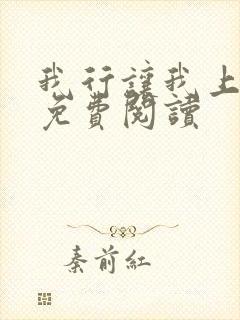 我行讓我上
免費閱讀
秦前紅